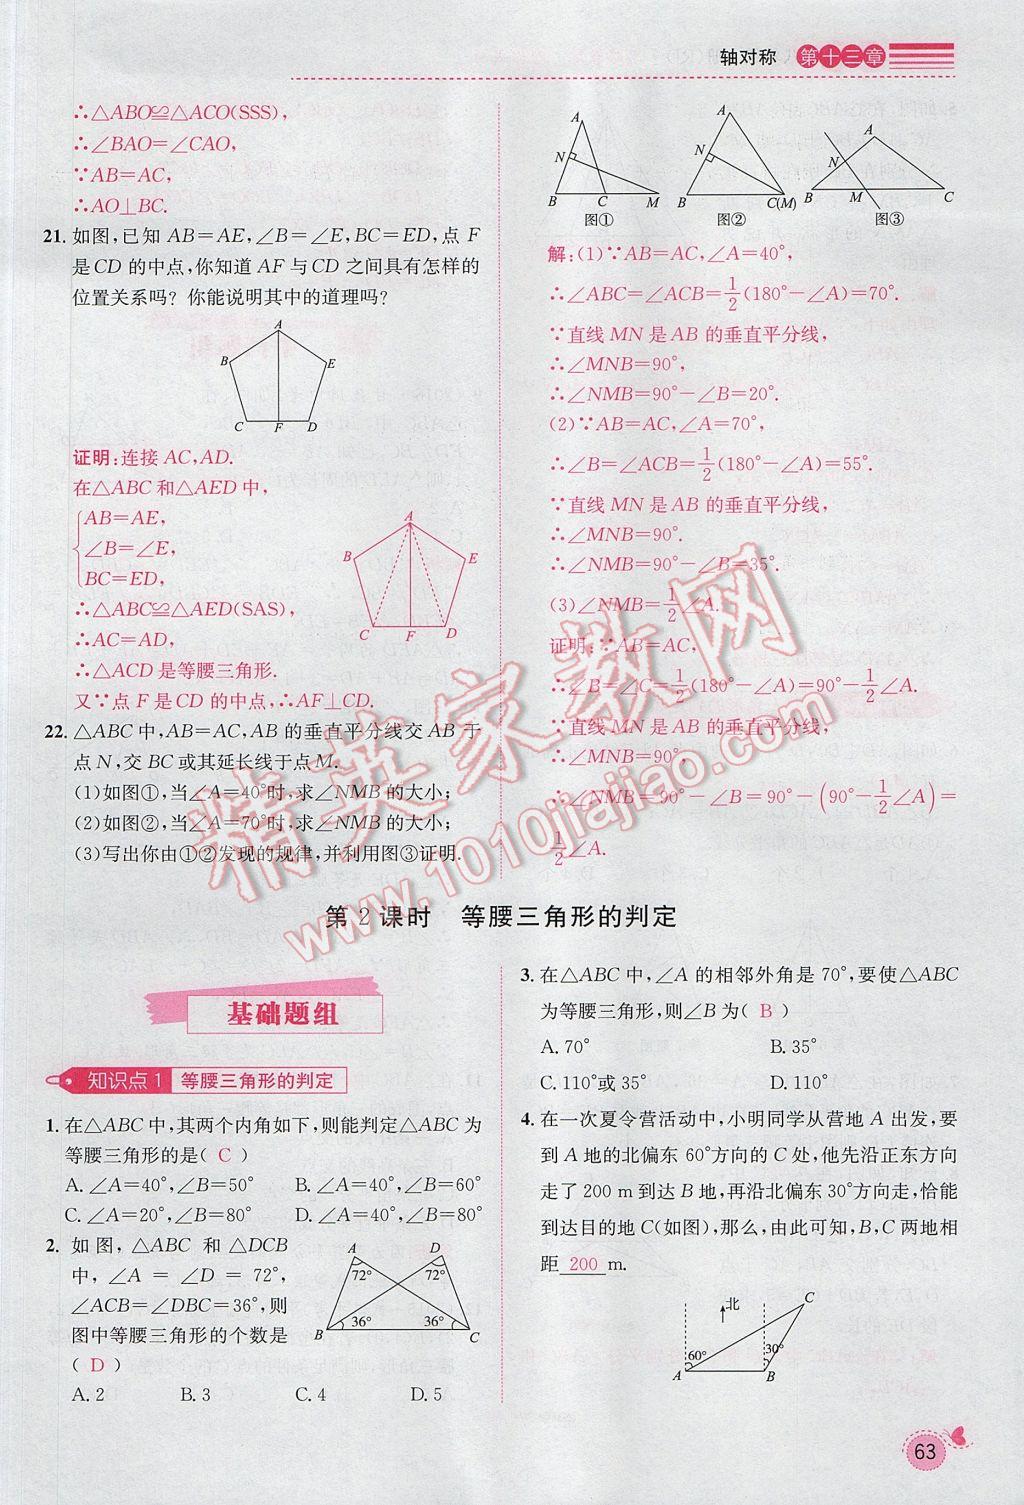 轴对称 第十三章
∴△ABO≌△ACO(SSS),
∴∠BAO=∠CAO,
∵AB=AC,
∴AO⊥BC.
21. 如图,已知 AB=AE,∠B=∠E,BC=ED,点 F
是CD 的中点,你知道 AF 与CD 之间具有怎样的
位置关系吗? 你能说明其中的道理吗?
A
B E
C F D
证明:连接 AC,AD.
在△ABC 和△AED 中,
AB=AE,
∠B=∠E,
BC=ED,
∴△ABC≌△AED(SAS),
∴AC=AD,
∴△ACD 是等腰三角形.
又∵点 F 是CD 的中点,∴AF⊥CD.
A
B E
C F D
22. △ABC 中,AB=AC,AB 的垂直平分线交 AB 于
点 N,交 BC 或其延长线于点 M.
(1)如图①,当∠A=40°时,求∠NMB 的大小;
(2)如图②,当∠A=70°时,求∠NMB 的大小;
(3)写出你由①②发现的规律,并利用图③证明.
A
N
B C M
图①
A
N
B C(M)
图②
A
N
B M C
图③
解:(1)∵AB=AC,∠A=40°,
∴∠ABC=∠ACB=1/2(180°-∠A)=70°.
∵直线 MN 是 AB 的垂直平分线,
∴∠MNB=90°,
∴∠NMB=90°-∠B=20°.
(2)∵AB=AC,∠A=70°,
∴∠B=∠ACB=1/2(180°-∠A)=55°.
∵直线 MN 是 AB 的垂直平分线,
∴∠MNB=90°.
∴∠NMB=90°-∠B=35°.
(3)∠NMB=1/2∠A.
证明:∵AB=AC,
∴∠B=∠C=1/2(180°-∠A)=90°-1/2∠A.
∵直线 MN 是 AB 的垂直平分线,
∴∠MNB=90°,
∴∠NMB=90°-∠B=90°-(90°-1/2∠A)=
1/2∠A.
精英家教网
www.1010jiajiao.com
第 2 课时 等腰三角形的判定
基础题组
知识点 1 等腰三角形的判定
1. 在△ABC 中,其两个内角如下,则能判定△ABC 为
等腰三角形的是( C )
A. ∠A=40°,∠B=50° B. ∠A=40°,∠B=60°
C. ∠A=20°,∠B=80° D. ∠A=40°,∠B=80°
2. 如图,△ABC 和△DCB
中,∠A = ∠D = 72°,
∠ACB=∠DBC=36°,则
图中等腰三角形的个数是
( D )
A. 2 B. 3 C. 4 D. 5
A D
72° 72°
36° 36°
B C
3. 在△ABC 中,∠A 的相邻外角是 70°,要使△ABC
为等腰三角形,则∠B 为( B )
A. 70° B. 35°
C. 110°或 35° D. 110°
4. 在一次夏令营活动中,小明同学从营地 A 出发,要
到 A 地的北偏东 60°方向的 C 处,他先沿正东方向
走了 200 m 到达 B 地,再沿北偏东 30°方向走,恰能
到达目的地 C(如图),那么,由此可知,B,C 两地相
距 200 m.
北
C
60° 30°
A B
63